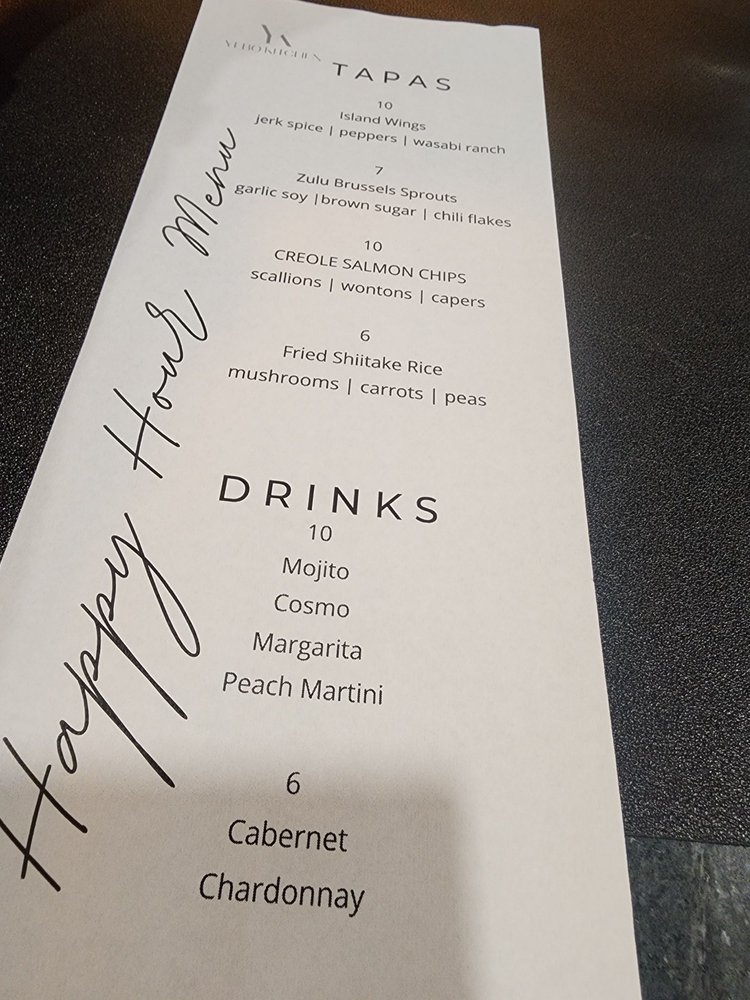 TAPAS
10
Island Wings
jerk spice | peppers | wasabi ranch
7
Zulu Brussels Sprouts
garlic soy |brown sugar | chili flakes
10
CREOLE SALMON CHIPS
scallions | wontons | capers
6
Fried Shiitake Rice
mushrooms | carrots | peas
Happy Hour Menu
DRINKS
10
Mojito
Cosmo
Margarita
Peach Martini
6
Cabernet
Chardonnay